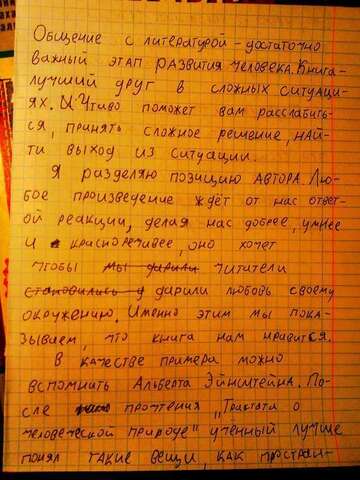 Общение с литературой - достаточно
важный этап развития человека. Книга -
лучший друг в сложных ситуаци-
ях. Чтиво поможет вам расслабить-
ся, принять сложное решение, най-
ти выход из ситуации.
Я разделяю позицию автора. Лю-
бое произведение ждёт от нас ответ-
ой реакции, делая нас добрее, умнее
и красноречивее, оно хочет
чтобы мы дарили читатели
становились д дарили любовь своему
окружению. Именно этим мы пока-
зываем, что книга нам нравится.
В качестве примера можно
вспомнить Альберта Эйнштейна. По-
сле прочтения "Трактата о
человеческой природе" учённый лучше
понял такие вещи, как простран-